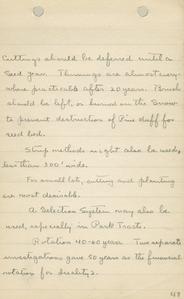 Cuttings should be deferred until a
seed year. Thinnings are almost every-
where practicable after 20 years. Brush
should be left, or burned on the snow
to prevent destruction of Pine duff for
seed bed.
Strip methods might also be used,
less than 300' wide.
For small lots, cutting and planting
are most desirable.
A Selection System may also be
used, especially in Park Tracts.
Rotation 40-60 years. Two separate
investigations gave 50 years as the financial
rotation for Quality 2.